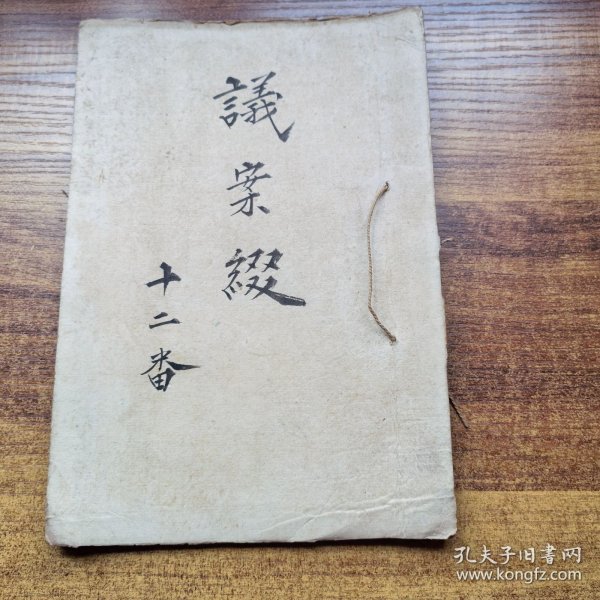 議案綴
十二番
孔夫子旧書网
www.kongfz.com